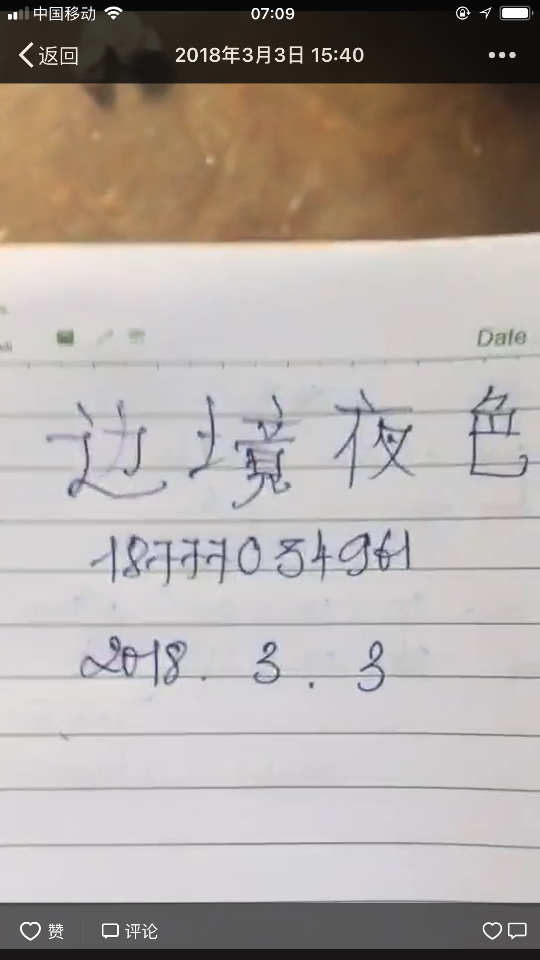 中国移动 07:09
返回 2018年3月3日 15:40
Date
边境夜色
18777034961
2018. 3. 3
赞 评论